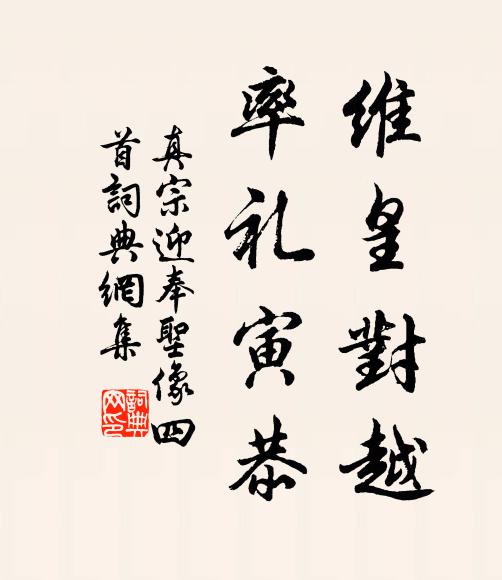 維皇對越
率礼寅恭
真宗迎奉聖像四
首詞典網集
詞典
网印